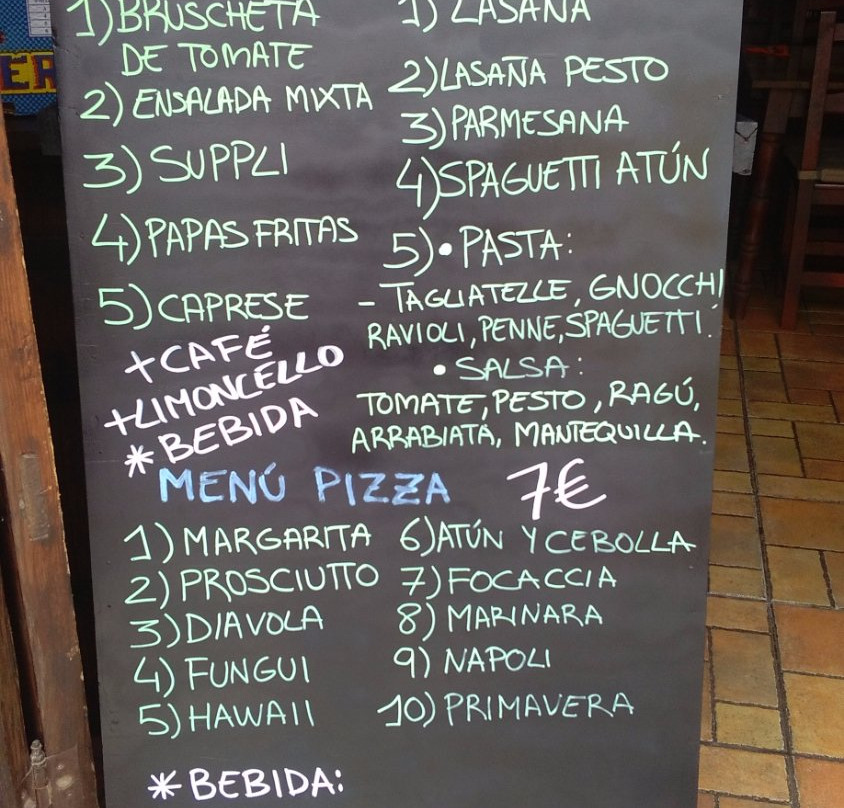 1) BRUSCHETA
DE TOMATE
2) ENSALADA MIXTA
3) SUPPLI
4) PAPAS FRITAS
5) CAPRESE
+ CAFÉ
+ LIMONCELLO
* BEBIDA
1) LASAÑA
2) LASAÑA PESTO
3) PARMESANA
4) SPAGUETTI ATÚN
5) • PASTA:
- TAGLIATELLE, GNOCCHI
RAVIOLI, PENNE, SPAGUETTI.
• SALSA:
TOMATE, PESTO, RAGÚ,
ARRABIATA, MANTEQUILLA.
MENÚ PIZZA 7€
1) MARGARITA
2) PROSCIUTTO
3) DIAVOLA
4) FUNGUI
5) HAWAII
6) ATÚN Y CEBOLLA
7) FOCACCIA
8) MARINARA
9) NAPOLI
10) PRIMAVERA
* BEBIDA: